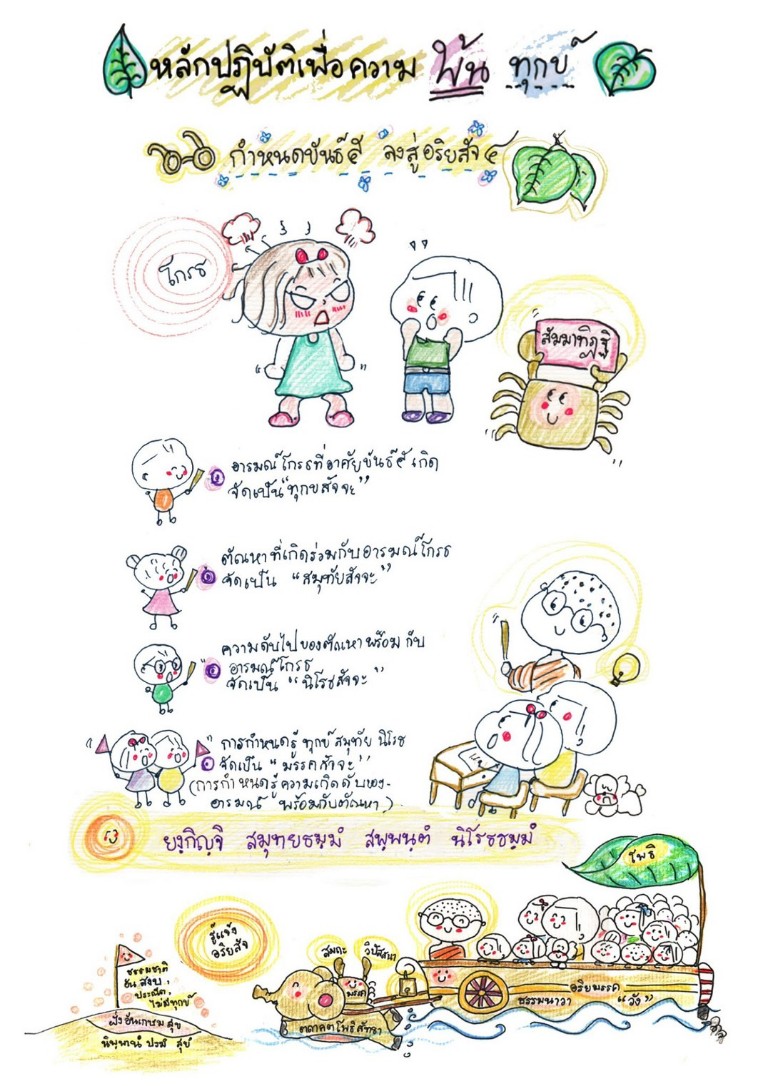 หลักปฏิบัติเพื่อความ พ้น ทุกข์
กำหนดขันธ์๕ ลงสู่อริยสัจ๔
โกรธ
สัมมาทิฏฐิ
อารมณ์โกรธที่อาศัยขันธ์๕ เกิด
จัดเป็น "ทุกขสัจจะ"
ตัณหาที่เกิดร่วมกับอารมณ์โกรธ
จัดเป็น "สมุทัยสัจจะ"
ความดับไปของตัณหา พร้อม กับ
อารมณ์โกรธ
จัดเป็น "นิโรธสัจจะ"
การกำหนดรู้ ทุกข์ สมุทัย นิโรธ
จัดเป็น "มรรคสัจจะ"
(การกำหนดรู้ความเกิดดับของ-
อารมณ์ พร้อมกับตัณหา)
ยงฺกิญฺจิ สมุทยธมฺมํ สพฺพนฺตํ นิโรธธมฺมํ
โพธิ
รู้แจ้ง
อริยสัจ
สมถะ วิปัสสนา
ธรรมชาติ
อัน สงบ,
ประณีต,
ไม่มีทุกข์
ฝั่งอันเกษม สุข
นิพฺพานํ ปรมํ สุขํ
มรรค
อริยมรรค
ธรรมนาวา "วัง"